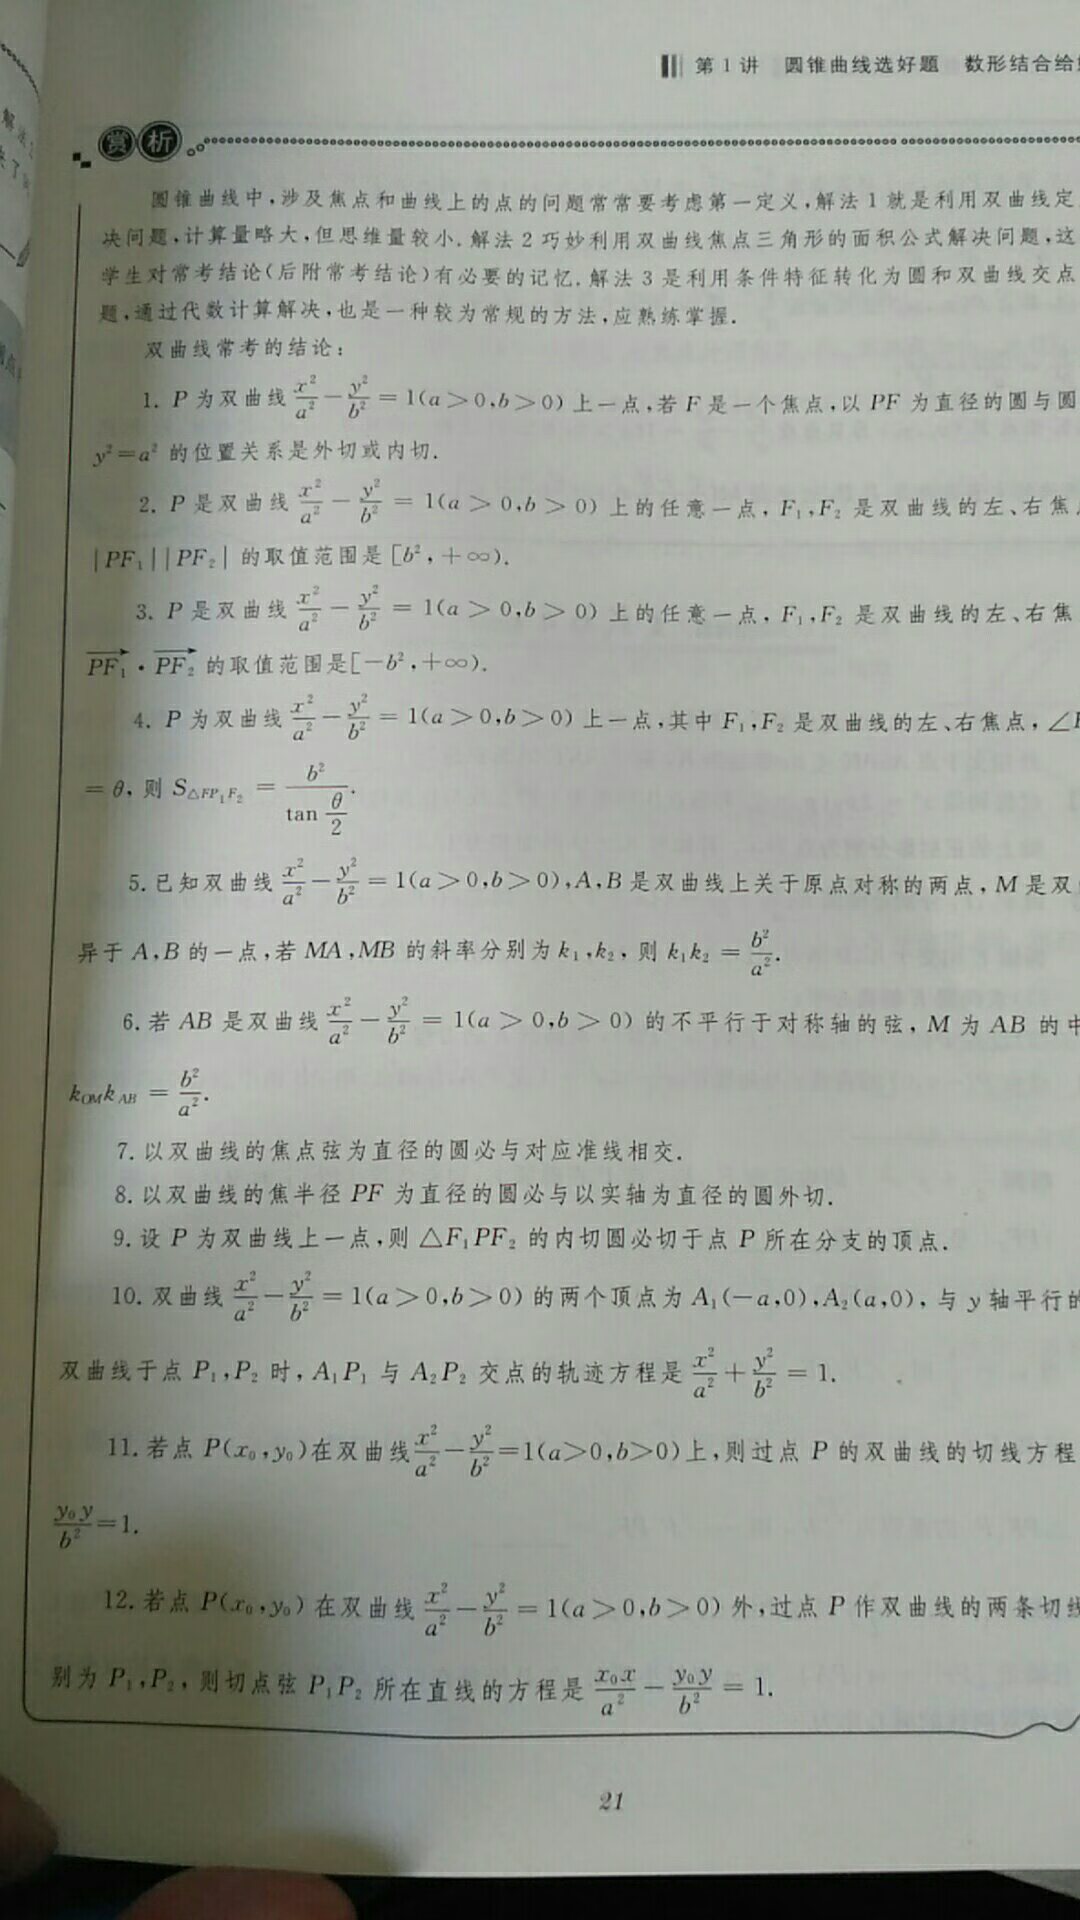 第1讲 圆锥曲线选好题 数形结合给
赏析
圆锥曲线中,涉及焦点和曲线上的点的问题常常要考虑第一定义,解法1就是利用双曲线定
决问题,计算量略大,但思维量较小.解法2巧妙利用双曲线焦点三角形的面积公式解决问题,这
学生对常考结论(后附常考结论)有必要的记忆.解法3是利用条件特征转化为圆和双曲线交点
题,通过代数计算解决,也是一种较为常规的方法,应熟练掌握.
双曲线常考的结论:
1. P为双曲线x²/a²-y²/b²=1(a>0,b>0)上一点,若F是一个焦点,以PF为直径的圆与圆
y²=a²的位置关系是外切或内切.
2. P是双曲线x²/a²-y²/b²=1(a>0,b>0)上的任意一点,F₁,F₂是双曲线的左、右焦
|PF₁||PF₂|的取值范围是[b²,+∞).
3. P是双曲线x²/a²-y²/b²=1(a>0,b>0)上的任意一点,F₁,F₂是双曲线的左、右焦
PF₁·PF₂的取值范围是[-b²,+∞).
4. P为双曲线x²/a²-y²/b²=1(a>0,b>0)上一点,其中F₁,F₂是双曲线的左、右焦点,∠
=θ,则S△FP₁F₂=b²/tan θ/2.
5.已知双曲线x²/a²-y²/b²=1(a>0,b>0),A,B是双曲线上关于原点对称的两点,M是双
异于A,B的一点,若MA,MB的斜率分别为k₁,k₂,则k₁k₂=b²/a².
6.若AB是双曲线x²/a²-y²/b²=1(a>0,b>0)的不平行于对称轴的弦,M为AB的中
kOM kAB=b²/a².
7.以双曲线的焦点弦为直径的圆必与对应准线相交.
8.以双曲线的焦半径PF为直径的圆必与以实轴为直径的圆外切.
9.设P为双曲线上一点,则△F₁PF₂的内切圆必切于点P所在分支的顶点.
10.双曲线x²/a²-y²/b²=1(a>0,b>0)的两个顶点为A₁(-a,0),A₂(a,0),与y轴平行的
双曲线于点P₁,P₂时,A₁P₁与A₂P₂交点的轨迹方程是x²/a²+y²/b²=1.
11.若点P(x₀,y₀)在双曲线x²/a²-y²/b²=1(a>0,b>0)上,则过点P的双曲线的切线方程
y₀y/b²=1.
12.若点P(x₀,y₀)在双曲线x²/a²-y²/b²=1(a>0,b>0)外,过点P作双曲线的两条切线
别为P₁,P₂,则切点弦P₁P₂所在直线的方程是x₀x/a²-y₀y/b²=1.
21